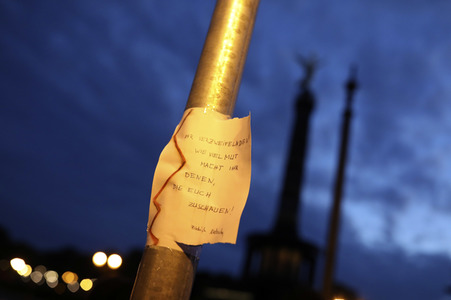 IHR VERZWEIFELNDEN
WIE VIEL MUT
MACHT IHR
DENEN,
DIE EUCH
ZUSCHAUEN!